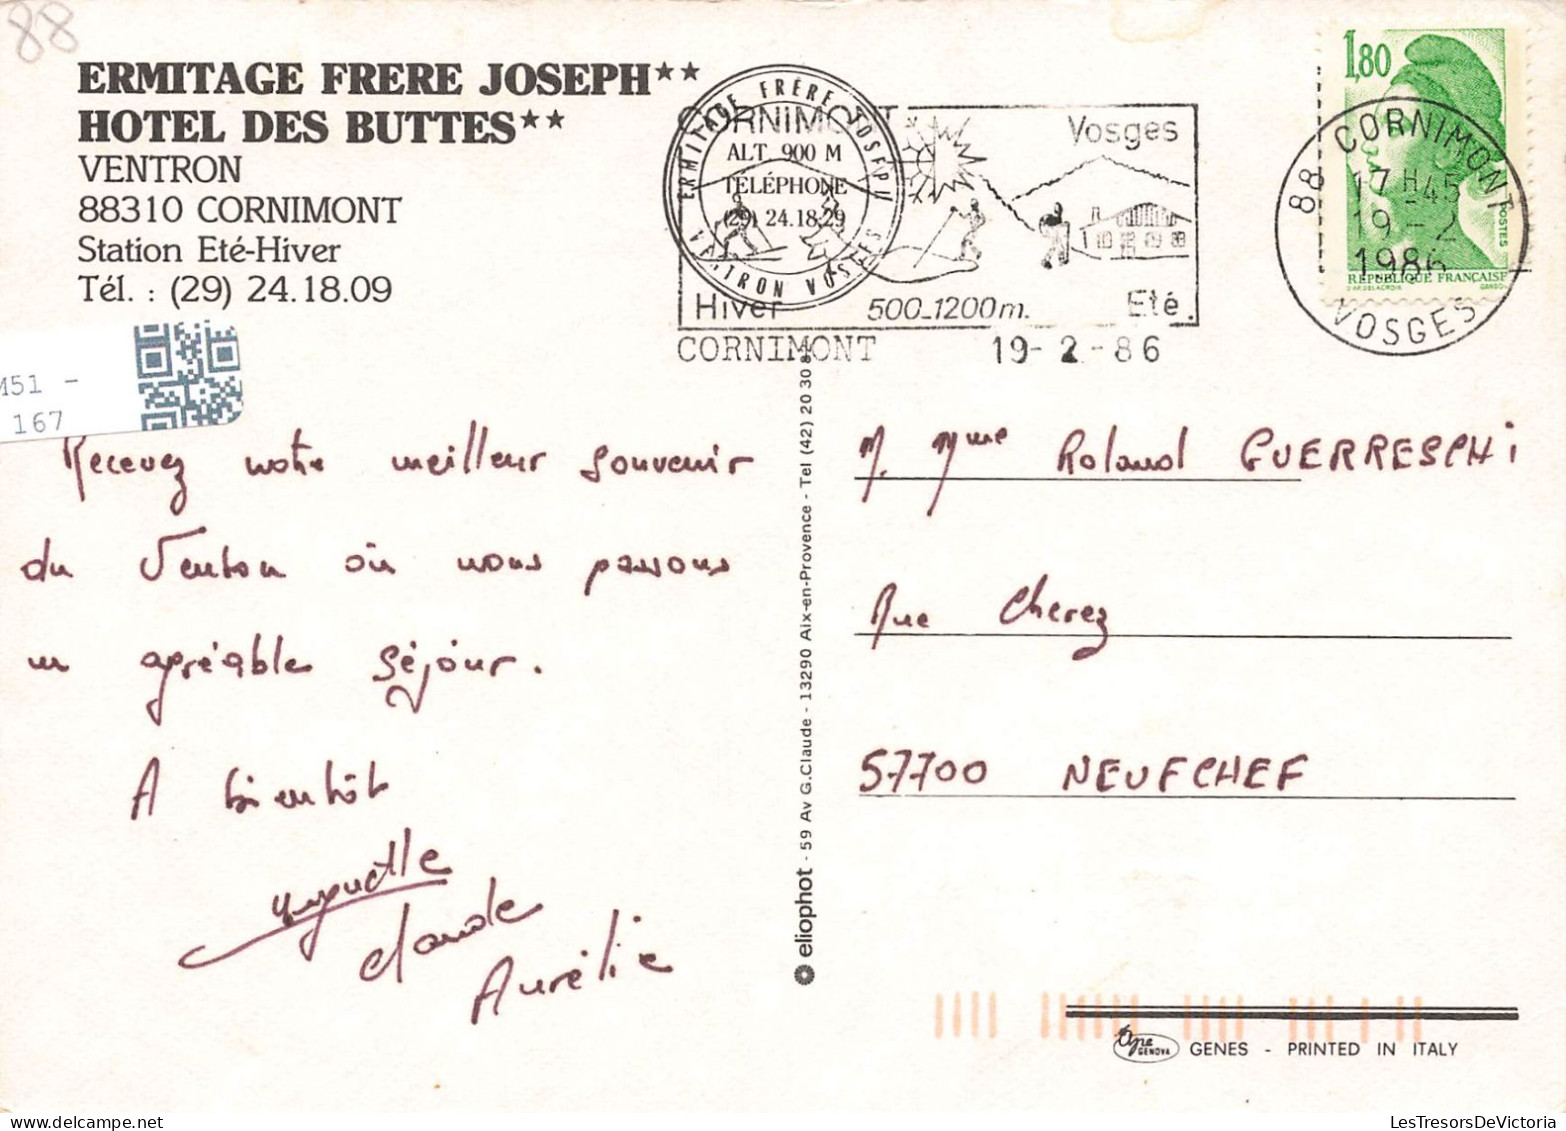 88
ERMITAGE FRERE JOSEPH**
HOTEL DES BUTTES**
VENTRON
88310 CORNIMONT
Station Eté-Hiver
Tél. : (29) 24.18.09
M51 -
167
ERMITAGE FRÈRE JOSEPH
ALT. 900 M
TÉLÉPHONE
(29) 24.18.29
VENTRON VOSGES
CORNIMONT Vosges
Hiver 500-1200m. Eté.
CORNIMONT 19-2-86
1,80
POSTES
REPUBLIQUE FRANÇAISE
D'AP. DELACROIX GANDON
88 CORNIMONT
17 H 45
19-2
1986
VOSGES
Recevez notre meilleur souvenir
du Ventron où nous passons
un agréable séjour.
A bientôt
Huguette
Claude
Aurélie
eliophot - 59 Av G.Claude - 13290 Aix-en-Provence - Tel (42) 20 30 84
M. Mme Roland GUERRESCHi
Rue Cherez
57700 NEUFCHEF
Ape GENOVA GENES - PRINTED IN ITALY
LesTresorsDeVictoria